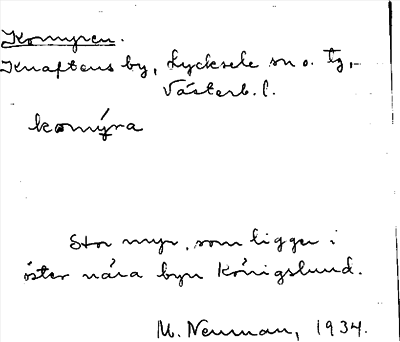 Komyren.
Knaftens by, Lycksele sn o. tg,
Västerb. l.
komýra
Stor myr, som ligger i
öster nära byn Königslund.
M. Neuman, 1934.